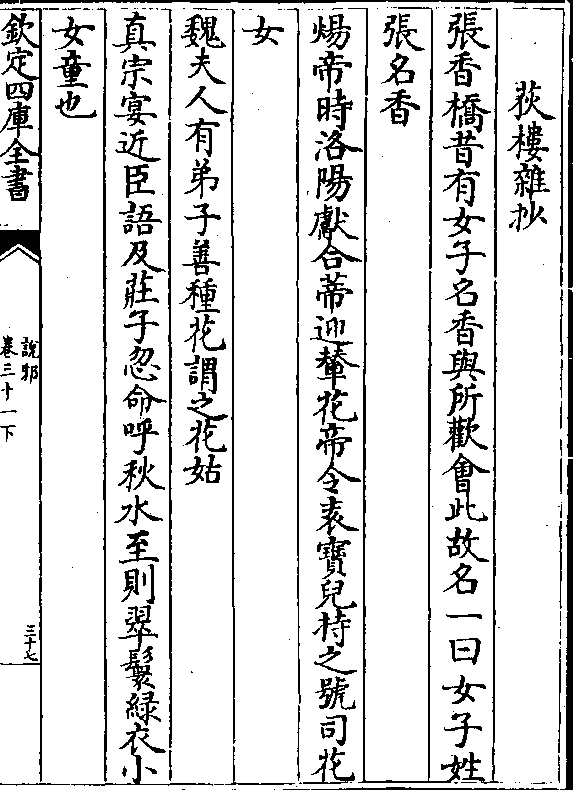 荻樓雜抄
張香橋昔有女子名香與所歡會此故名一曰女子姓
張名香
煬帝時洛陽獻合蒂迎輦花帝令袁寶兒持之號司花
女
魏夫人有弟子善種花謂之花姑
真宗宴近臣語及莊子忽命呼秋水至則翠鬟緑衣小
女童也
欽定四庫全書
說郛
卷三十一下
三十七